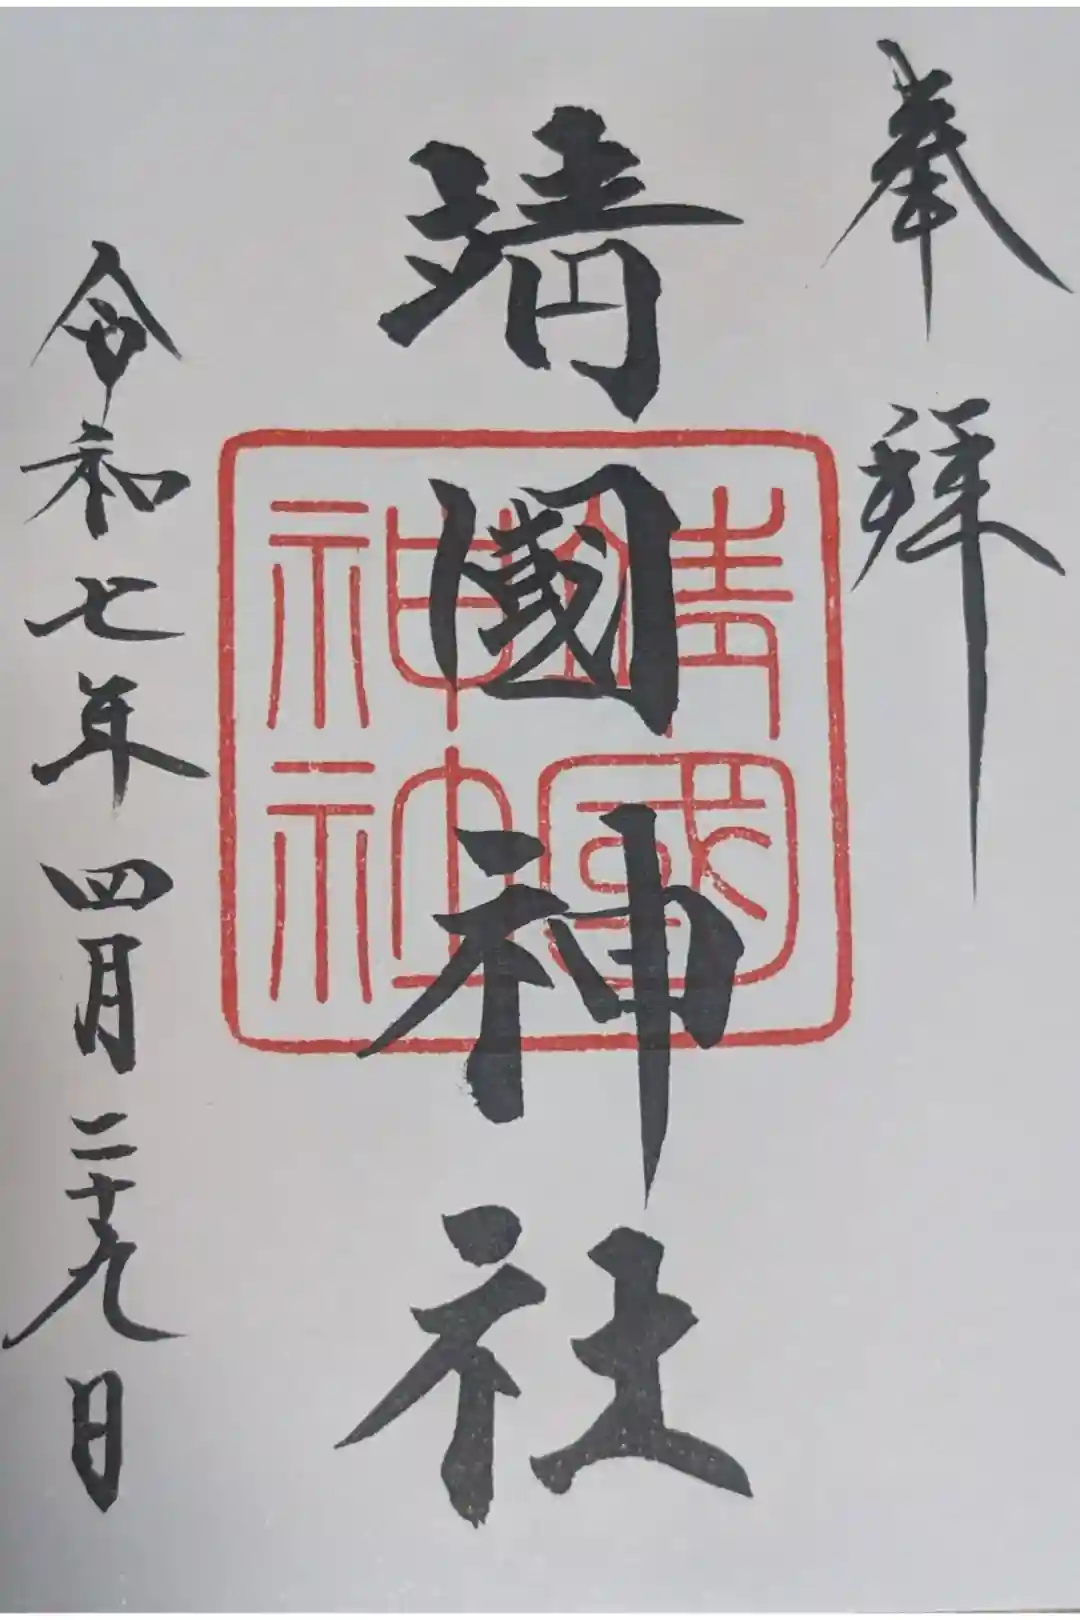 奉拝
靖國神社
靖國
神社
令和七年四月二十九日